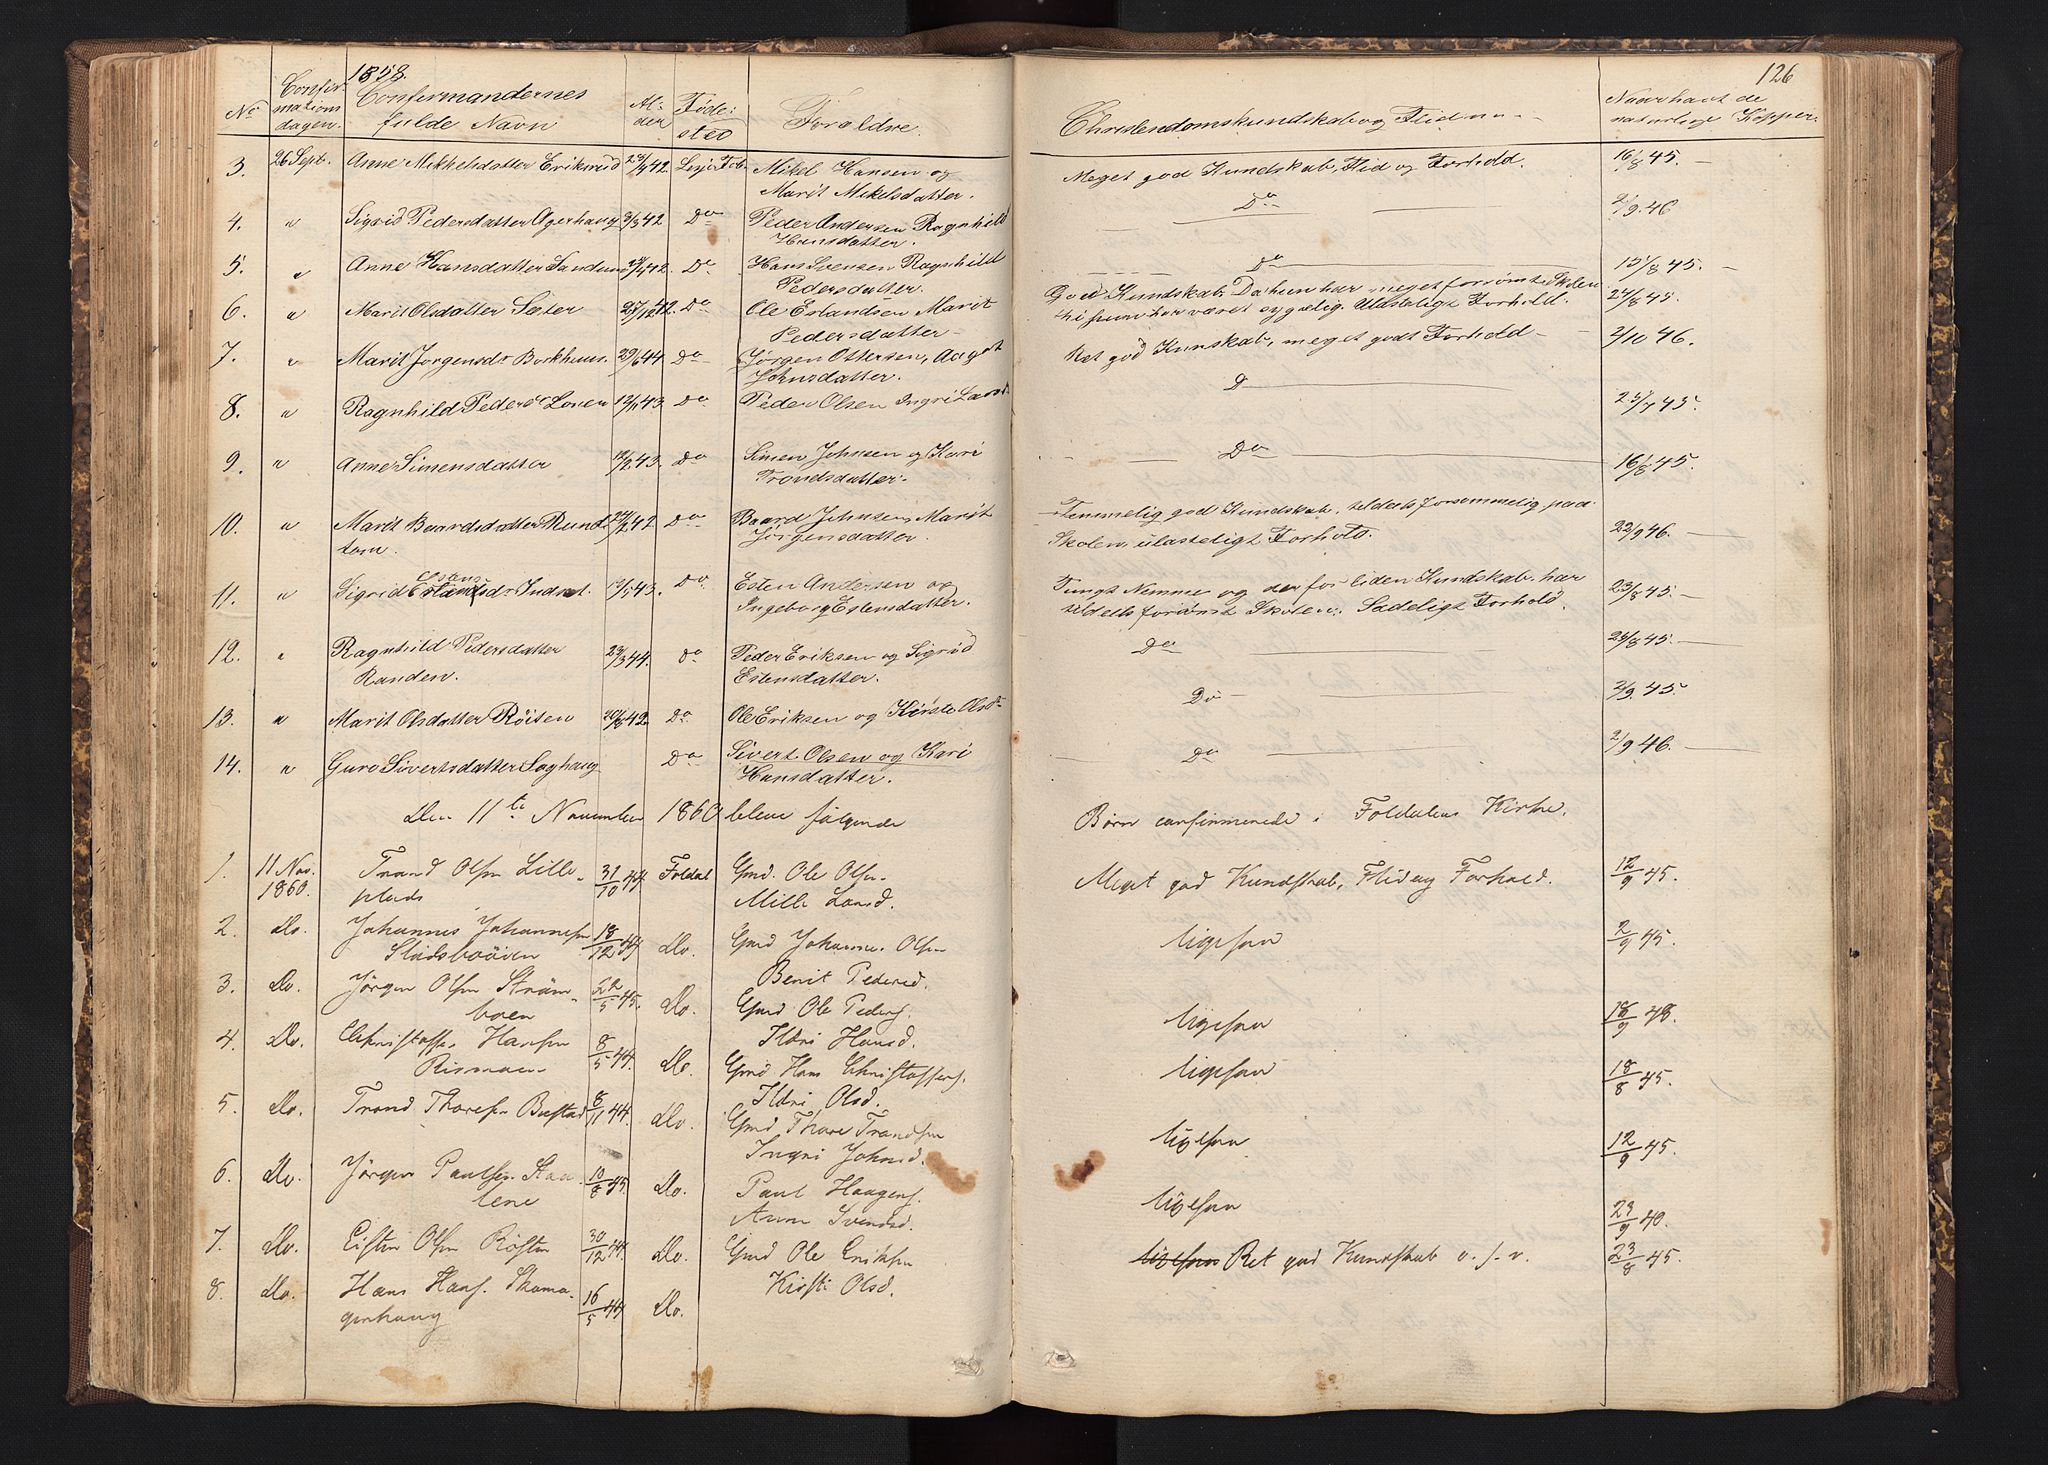 1858.
126
No
Confir-
mations
dagen.
Confirmandernes
fulde Navn
Al-
der
Føde-
sted
Foreldre.
Christendomskundskab og Flid
Naar havt de
naturlige Kopper.
3. 26 Sept. Anne Mikkelsdatter Eriksrud 42. Mikel Hansen og Meget god Kundskab, Flid og Forhold. 16/8 45.
Marit Mikelsdatter.
4. " Sigrid Pedersdatter Agerhaug 3/3 42 Do Peder Andersen Ragnhild Do 2/9. 46
Hansdatter.
5. " Anne Hansdatter 42. Do Hans Svensen Ragnhild Do 15/8 45.
Pedersdatter.
6. " Marit Olsdatter Sæter 27/12 42. Do Ole Estensen Marit God Kundskab. Da hun har meget forsømt Skolen 24/8 45.
Pedersdatter thi hun har været sygelig. Ulasteligt Forhold.
7. " Marit Jørgensdr Borkhuus. 29/6 44. Do Jørgen Ottersen, Aagot Ret god Kunskab, meget godt Forhold 2/10 46.
Johnsdatter.
8. " Ragnhild Pedersdr Lonen 12/11 43. Do Peder Olsen Ingri D 23/7 45.
9. " Anne Simensdatter 12/2 43. Do Simen Johnsen og Kari Do 16/8 45.
Trondsdatter.
10. " Marit Baardsdatter Rund- 42 Do Baard Johnsen, Marit Temmelig god Kundskab, tildels forsømmelig paa 22/9 46.
tom. Jørgensdatter. Skolen, ulasteligt Forhold.
11. " Sigrid Estensdr Indset. 12/5 43. Do Esten Andersen og Tungt Nemme og derfor liden Kundskab, har 23/8 45.
Ingeborg Estensdatter. tildels forsømt Skolen. Sædeligt Forhold.
12. " Ragnhild Pedersdatter 23/3 44. Do Peder Eriksen og Sigrid Do 23/8 45.
Randen. Estensdatter.
13. " Marit Olsdatter Röiten 20/8 42. Do Ole Eriksen og Kirsti Olsdr Do 2/9. 45.
14. " Guro Sivertsdatter Soghaug Do Sivert Olsen og Kari Do 2/9 46.
Hansdatter.
Den 11te November 1860 bleve følgende Børn confirmerede i Foldalens Kirke.
1. 11 Nov. Trond Olsen Lille- 31/10 44 Foldal Gmd. Ole Olsen Meget god Kundskab, Flid og Forhold. 12/9 45.
1860. plads Mille Larsd.
2. Do. Johannes Johannesen 18/12 44 Do. Gmd Johannes Olsen ligesaa 2/9 45.
Stadsbuøien Berit Pedersd.
3. Do. Jørgen Olsen Ström- 22/5 45. Do. Gmd Ole Peders. ligesaa 18/9 48.
boen Ildri Hansd.
4. Do. Christoffer Hansen 8/5 44. Do. Gmd Hans Christoffers. ligesaa 18/8 45.
Rismoen Ildri Olsd.
5. Do. Trond Thoresen Bustad 8/11 44. Do. Gmd Thore Trondsen ligesaa 12/9 45.
Ingri Johnsd.
6. Do. Jørgen Paulsen Staa- 10/8 45. Do. Paul Haagens. ligesaa 23/9 40.
lene Anne Svendsd.
7. Do. Esten Olsen Røsten 30/12 44. Do. Gmd Ole Eriksen ligesaa Ret god Kundskab o.s.v. 23/8 45.
Kirsti Olsd.
8. Do. Hans Hans. Skoma- 16/5 44 Do.
gerhaug